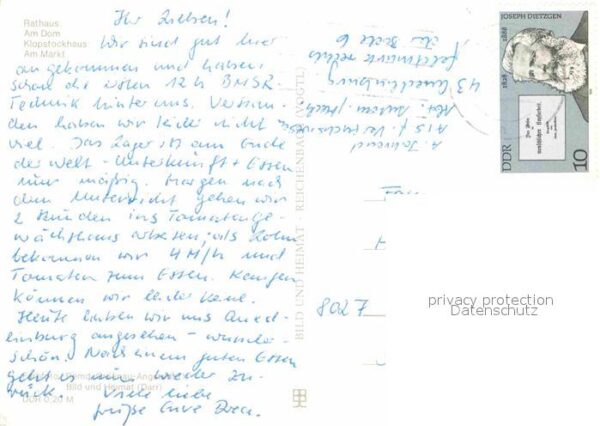 Rathaus
Am Dom
Klopstockhaus
Am Markt
Ihr Lieben!
Wir sind gut hier
angekommen und haben
schon die ersten 12 h BMSR-
Technik hinter uns. Verstan-
den haben wir leider nicht
viel. Das Lager ist am Ende
der Welt - Unterkunft + Essen
nur mäßig. Morgen nach
dem Unterricht gehen wir
2 Stunden ins Tomatenge-
wächshaus arbeiten, als Lohn
bekommen wir 4 M/h und
Tomaten zum Essen. Kaufen
können wir leider keine.
Heute haben wir uns Qued-
linburg angesehen - wunder-
schön. Nach einem guten Essen
geht es nun wieder zu-
rück. Viele liebe
Grüße Eure
Bild und Heimat (Darr)
DDR 0,20 M
BILD UND HEIMAT REICHENBACH (VOGTL)
43 Quedlinburg
JOSEPH DIETZGEN
1828 1888
DDR
10
privacy protection
Datenschutz